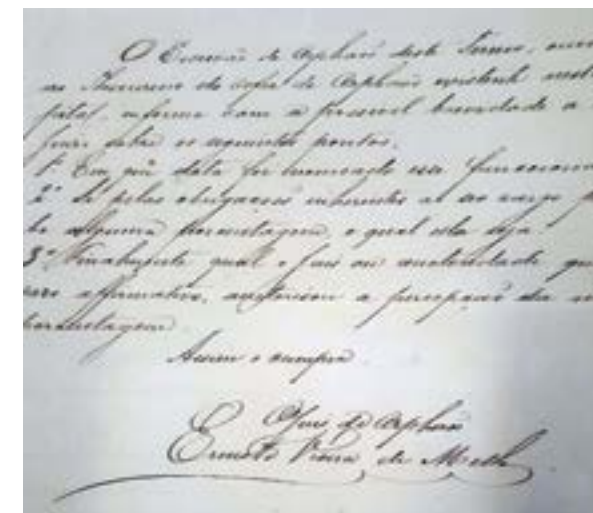 O Escrivão de Orphãos deste Termo, ouvin
ao Thesoureiro do cofre de Orphãos existente nesta
informe com a possivel brevidade a
Juizo sobre os seguintes pontos.
1º Em que data foi nomeado esse funccionar
2º Se pelas obrigações inherentes ao cargo
be alguma porcentagem, e qual ella seja
3º Finalmente qual o Juiz ou auctoridade que
caso affirmativo, auctorisou a percepção da
porcentagem.
Assim o cumpra.
O Juiz de Orphãos
Ernesto Vieira de Mello